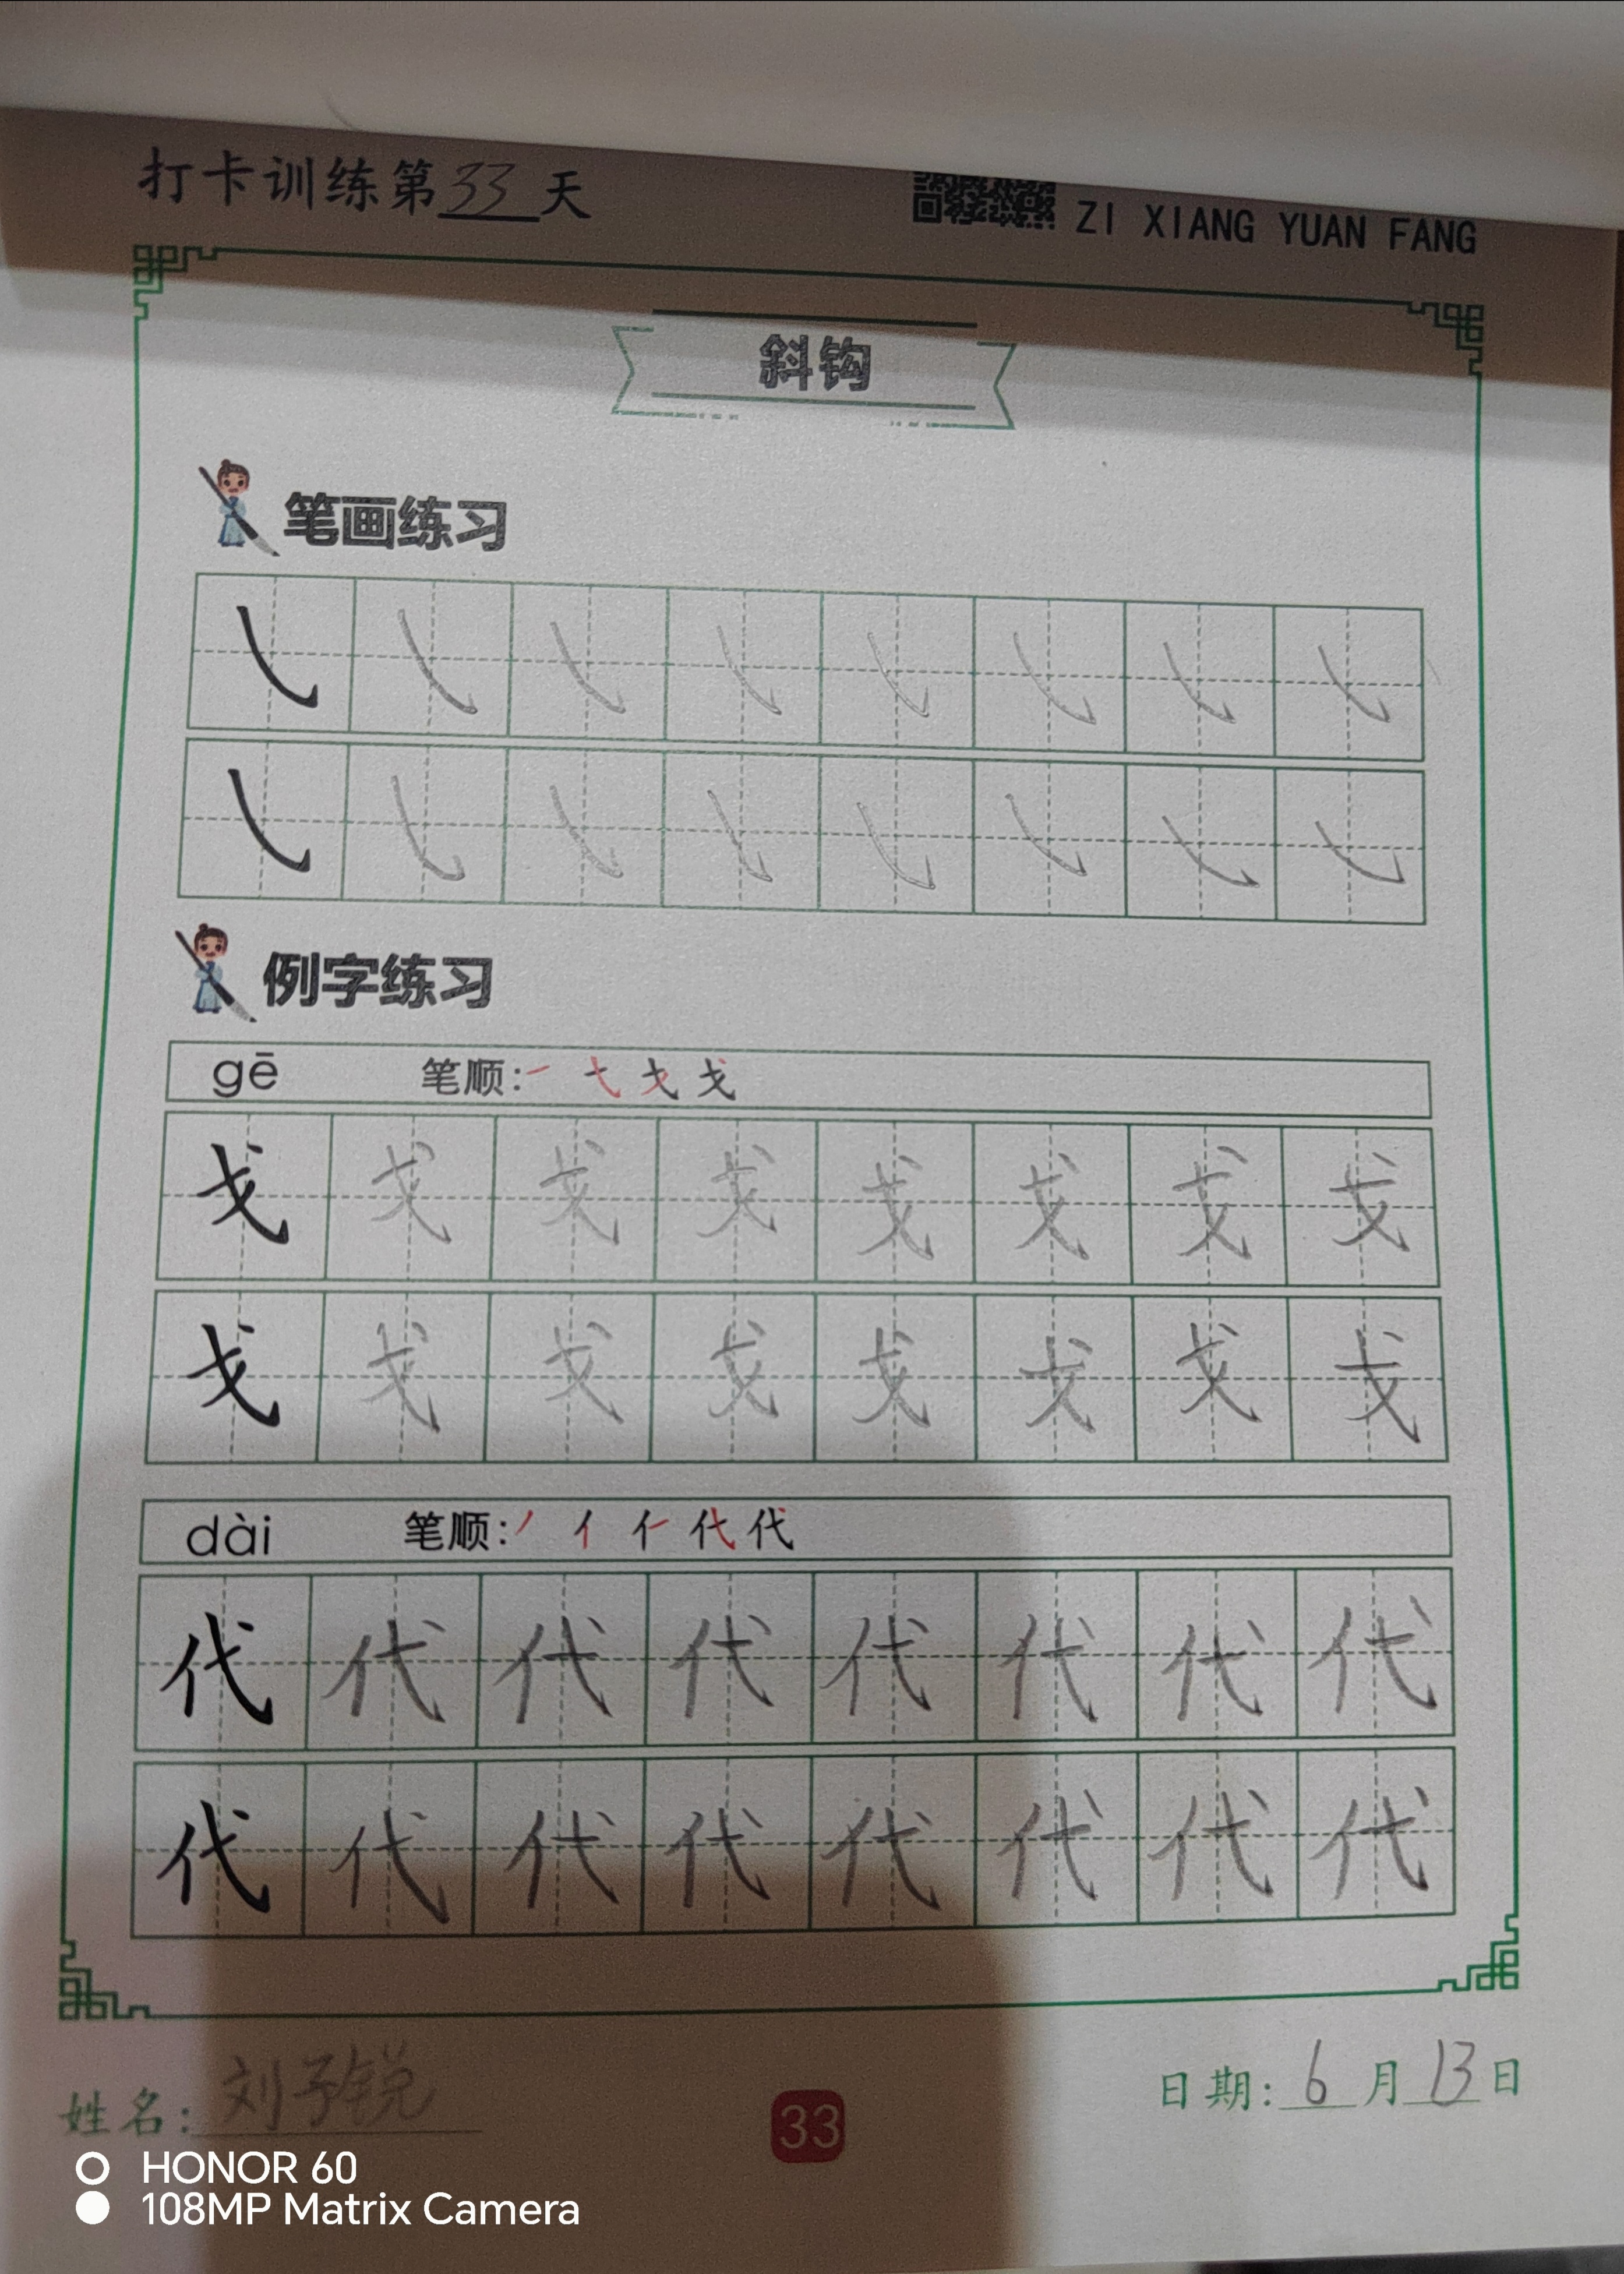 打卡训练第33天
ZI XIANG YUAN FANG
斜钩
笔画练习
㇂ ㇂ ㇂ ㇂ ㇂ ㇂ ㇂ ㇂
㇂ ㇂ ㇂ ㇂ ㇂ ㇂ ㇂ ㇂
例字练习
gē 笔顺:一 弋 戈 戈
戈 戈 戈 戈 戈 戈 戈 戈
戈 戈 戈 戈 戈 戈 戈 戈
dài 笔顺:丿 亻 仁 代 代
代 代 代 代 代 代 代 代
代 代 代 代 代 代 代 代
姓名:刘子锐
33
日期:6月13日
HONOR 60
108MP Matrix Camera